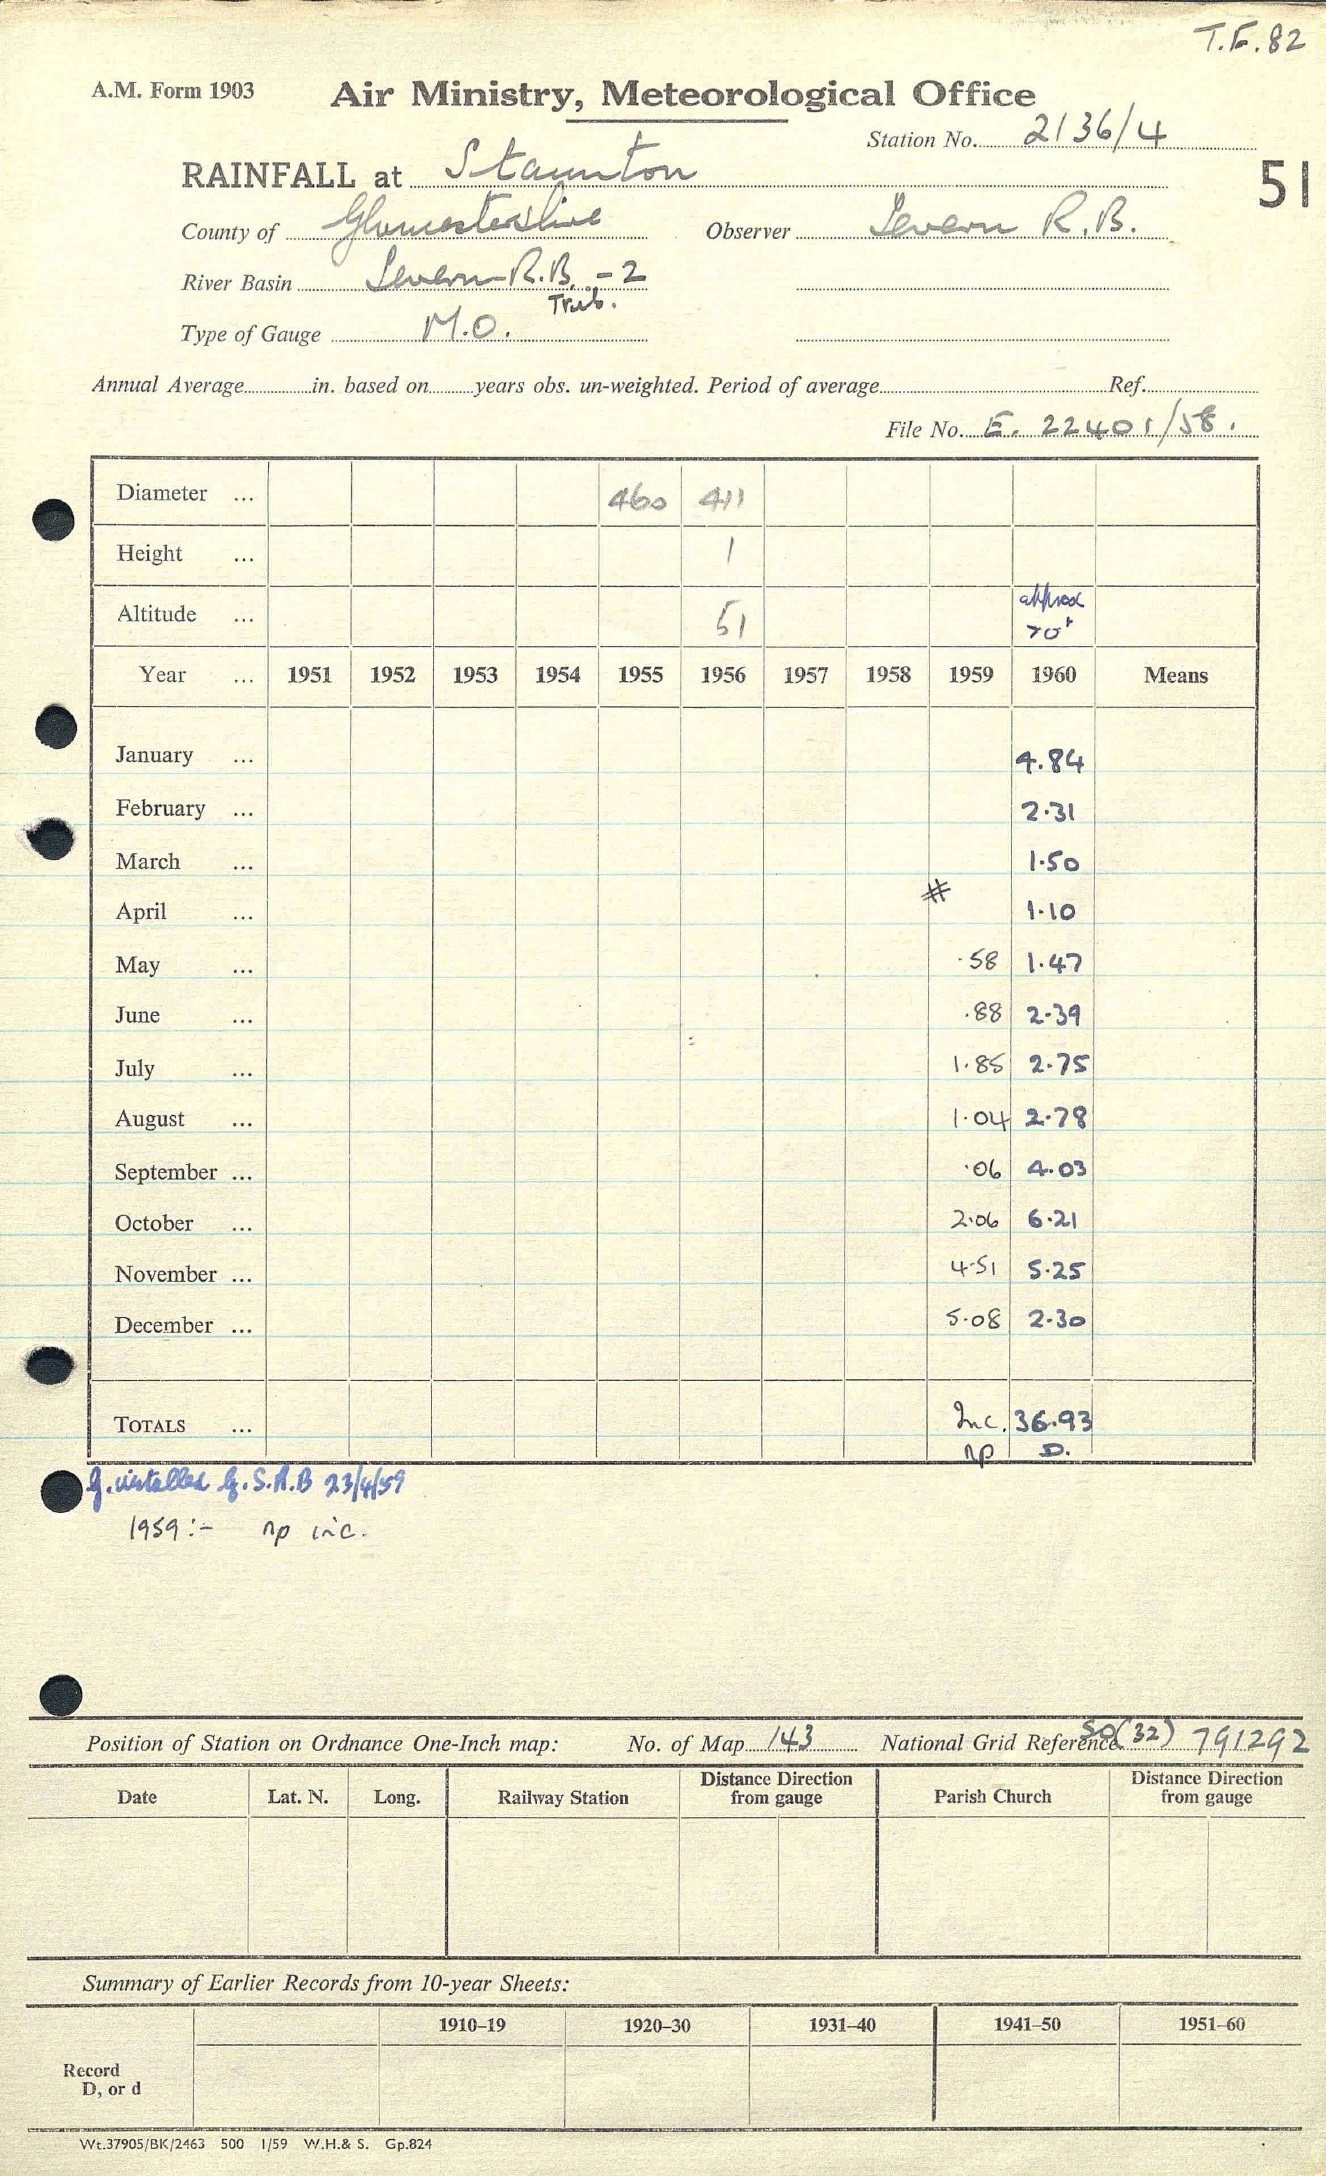 T.E.82
A.M. Form 1903 Air Ministry, Meteorological Office
Station No. 2136/4
RAINFALL at Staunton 51
County of Gloucestershire Observer Severn R.B.
River Basin Severn R.B. - 2
Trib.
Type of Gauge M.O.
Annual Average in. based on years obs. un-weighted. Period of average Ref.
File No. E. 22401/58.
Diameter ... 460 411
Height ... 1
Altitude ... 51 approx 70'
Year ... 1951 1952 1953 1954 1955 1956 1957 1958 1959 1960 Means
January ... 4.84
February ... 2.31
March ... 1.50
#
April ... 1.10
May ... .58 1.47
June ... .88 2.39
July ... 1.85 2.75
August ... 1.04 2.78
September ... .06 4.03
October ... 2.06 6.21
November ... 4.51 5.25
December ... 5.08 2.30
TOTALS ... Inc. 36.93
np D.
g. installed G.S.A.B 23/4/59
1959:- np inc.
Position of Station on Ordnance One-Inch map: No. of Map 143 National Grid Reference SO(32) 791292
Date Lat. N. Long. Railway Station Distance Direction from gauge Parish Church Distance Direction from gauge
Summary of Earlier Records from 10-year Sheets:
1910–19 1920–30 1931–40 1941–50 1951–60
Record
D, or d
Wt.37905/BK/2463 500 1/59 W.H.& S. Gp.824